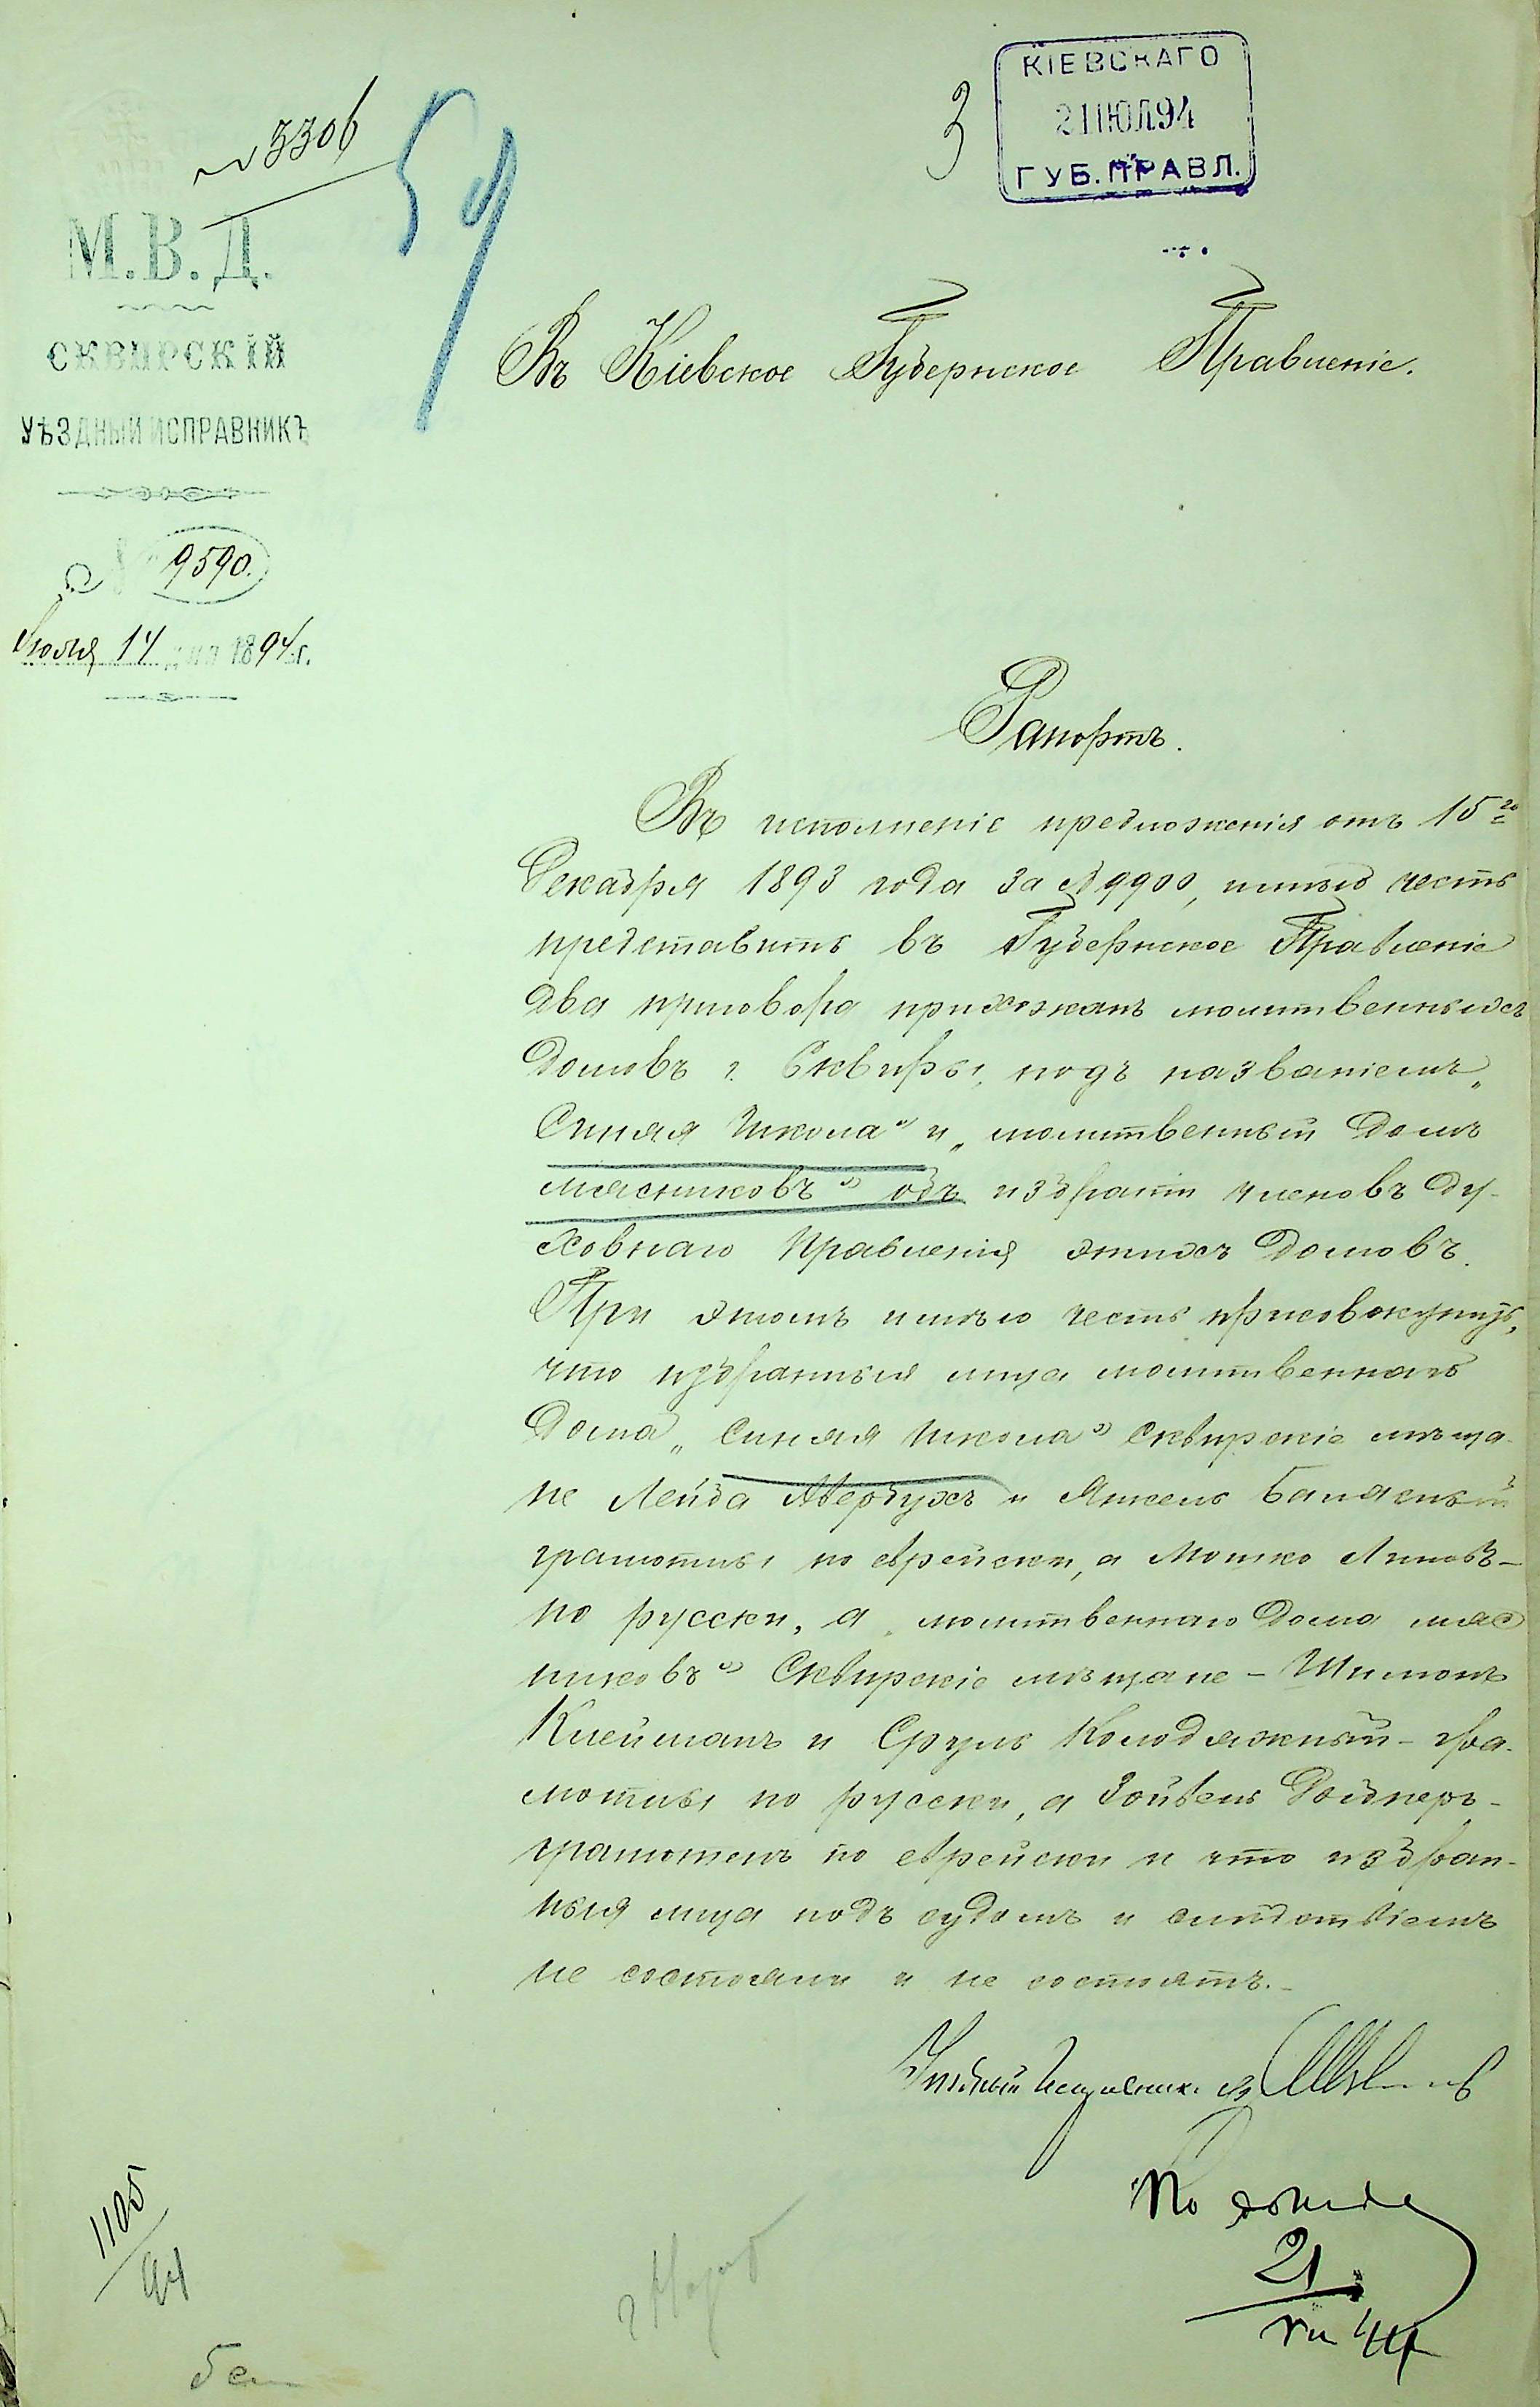 КІЕВСКАГО
21 ІЮЛ 94
ГУБ. ПРАВЛ.
3
№ 3306
59
М.В.Д.
СКВИРСКІЙ
УѢЗДНЫЙ ИСПРАВНИКЪ
9590.
Іюля 14 дня 1894 г.
Въ Кіевское Губернское Правленіе.
Рапортъ.
Въ исполненіе предложенія отъ 15го
Декабря 1893 года за № 9900, имѣю честь
представить въ Губернское Правленіе
два приговора прихожанъ молитвенныхъ
домовъ г. Сквиры, подъ названіемъ „
Синяя Школа" и „молитвенный домъ
мясниковъ" объ избраніи членовъ Ду-
ховнаго Правленія этихъ домовъ.
При этомъ имѣю честь присовокупить,
что избранныя лица молитвеннаго
дома „Синяя школа" Сквирскіе мѣща-
не Лейба Авербухъ и Янкель Балясный
грамотны по еврейски, а Мошко Линовъ-
по русски, а „молитвеннаго дома мяс
никовъ" Сквирскіе мѣщане - Шимонъ
Клейманъ и Сруль Колодяжный - гра-
мотны по русски, а Зойвель Дойднеръ-
грамотенъ по еврейски и что избран-
ныя лица подъ судомъ и слѣдствіемъ
не состояли и не состоятъ.-
Уѣздный Исправникъ
21
VII 94
1105
94